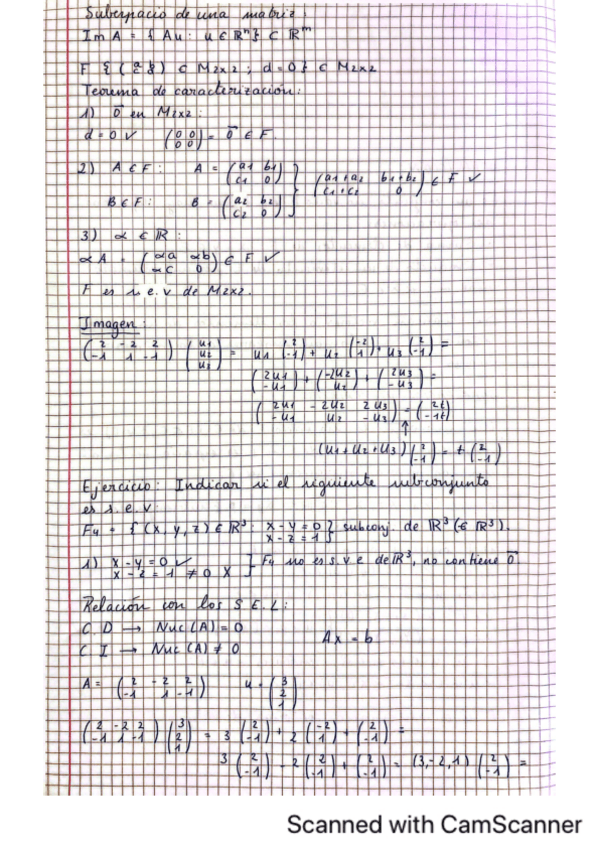 Subespacio de una matriz:
Im A = { Au : u ∈ ℝⁿ } ⊂ ℝᵐ
F { (a b; c d) ∈ M2x2 ; d = 0 } ∈ M2x2
Teorema de caracterización:
1) 0⃗ en M2x2:
d = 0 ✓ (0 0; 0 0) = 0⃗ ∈ F
2) A ∈ F: A = (a1 b1; c1 0) } (a1+a2 b1+b2; c1+c2 0) ∈ F ✓
B ∈ F: B = (a2 b2; c2 0)
3) α ∈ ℝ:
αA = (αa αb; αc 0) ∈ F ✓
F es s.e.v de M2x2.
Imagen:
(2 -2 2; -1 1 -1) (u1; u2; u3) = u1 (2; -1) + u2 (-2; 1) + u3 (2; -1) =
(2u1; -u1) + (-2u2; u2) + (2u3; -u3) =
(2u1 - 2u2 2u3; -u1 u2 -u3) = (2t; -1t)
↑
(u1 + u2 + u3) (2; -1) = t (2; -1)
Ejercicio: Indicar si el siguiente subconjunto
es s.e.v:
F4 = { (x, y, z) ∈ ℝ³ : x - y = 0; x - z = 1 } subconj. de ℝ³ (∈ ℝ³).
1) x - y = 0 ✓
x - z = 1 ≠ 0 X } F4 no es s.v.e de ℝ³, no contiene 0⃗.
Relación con los S.E.L:
C D → Nuc (A) = 0
Ax = b
C I → Nuc (A) ≠ 0
A = (2 -2 2; -1 1 -1) u = (3; 2; 1)
(2 -2 2; -1 1 -1) (3; 2; 1) = 3 (2; -1) + 2 (-2; 1) + (2; -1) =
3 (2; -1) - 2 (2; -1) + (2; -1) = (3, -2, 1) (2; -1) =
Scanned with CamScanner